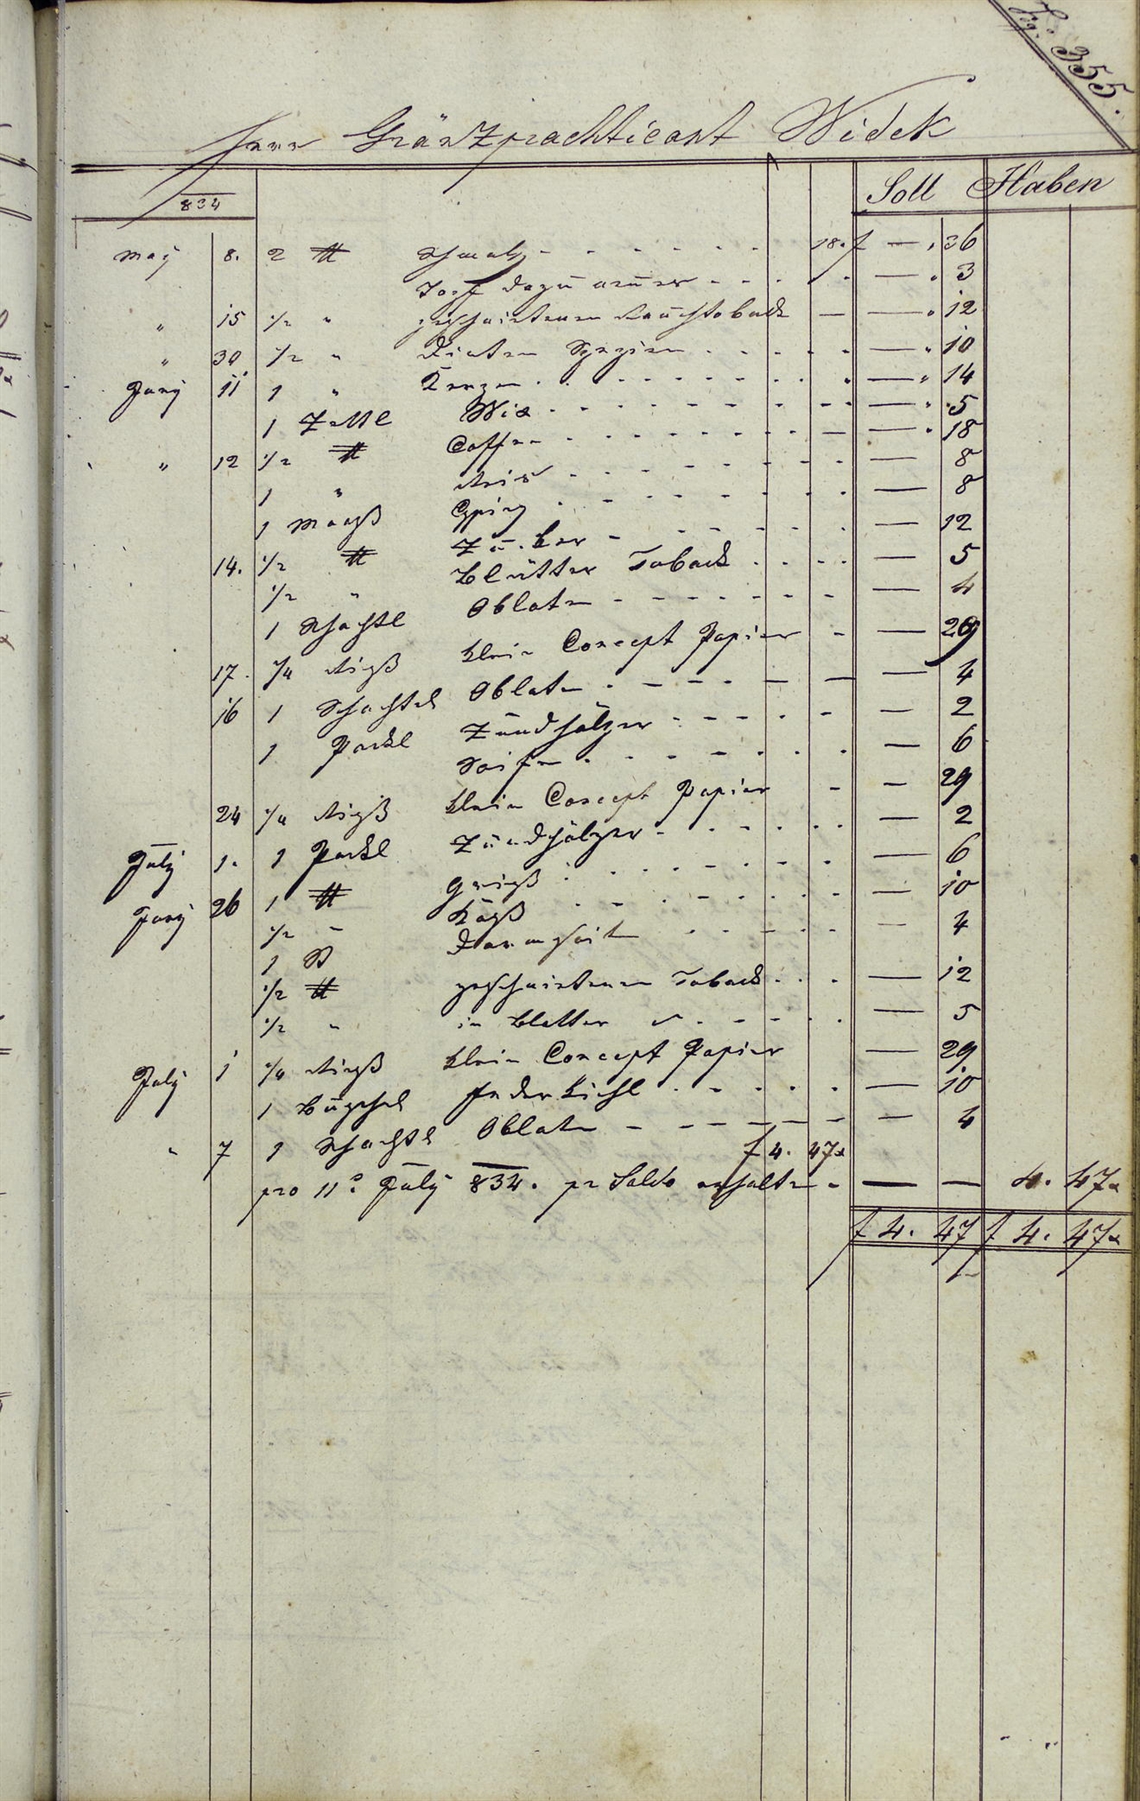 fig. 355.
Herr Gränzpracticant Widek
834 Soll Haben
May 8. 2 ℔ Schmalz 18. f — . 36
dazu — . 3
" 15 1/2 " geschnittenen Rauchtoback — — . 12
" 30 1/2 " Spezien — . 10
Juny 11 1 " Kerzen — . 14
1 Zettl Wix — . 5
" 12 1/2 ℔ Caffee — — . 18
1 " Reis — 8
1 Maaß — 8
14. 1/2 ℔ Zucker — 12
1/2 " Blätter Taback — 5
1 Schachtl Oblaten — 4
17. 1/4 Rieß klein Concept Papier — 29
16 1 Schachtel Oblaten — 4
1 Packl Zündhölzer — 2
Seife — 6
24 1/4 Rieß klein Concept Papier — 29
July 1. 1 Packl Zündhölzer — 2
Juny 26 1 ℔ Grieß — 6
1/2 " Käß — 10
1 St Darmsaite — 4
1/2 ℔ geschnittenen Taback — 12
1/2 " in Blatter — 5
July 1 1/4 Rieß klein Concept Papier — 29
1 Büschel Federkiehl — 10
" 7 1 Schachtl Oblaten — 4
f 4. 47x
pro 11. July 834. pr Saldo erhalten — — 4. 47x
f 4. 47 f 4. 47x